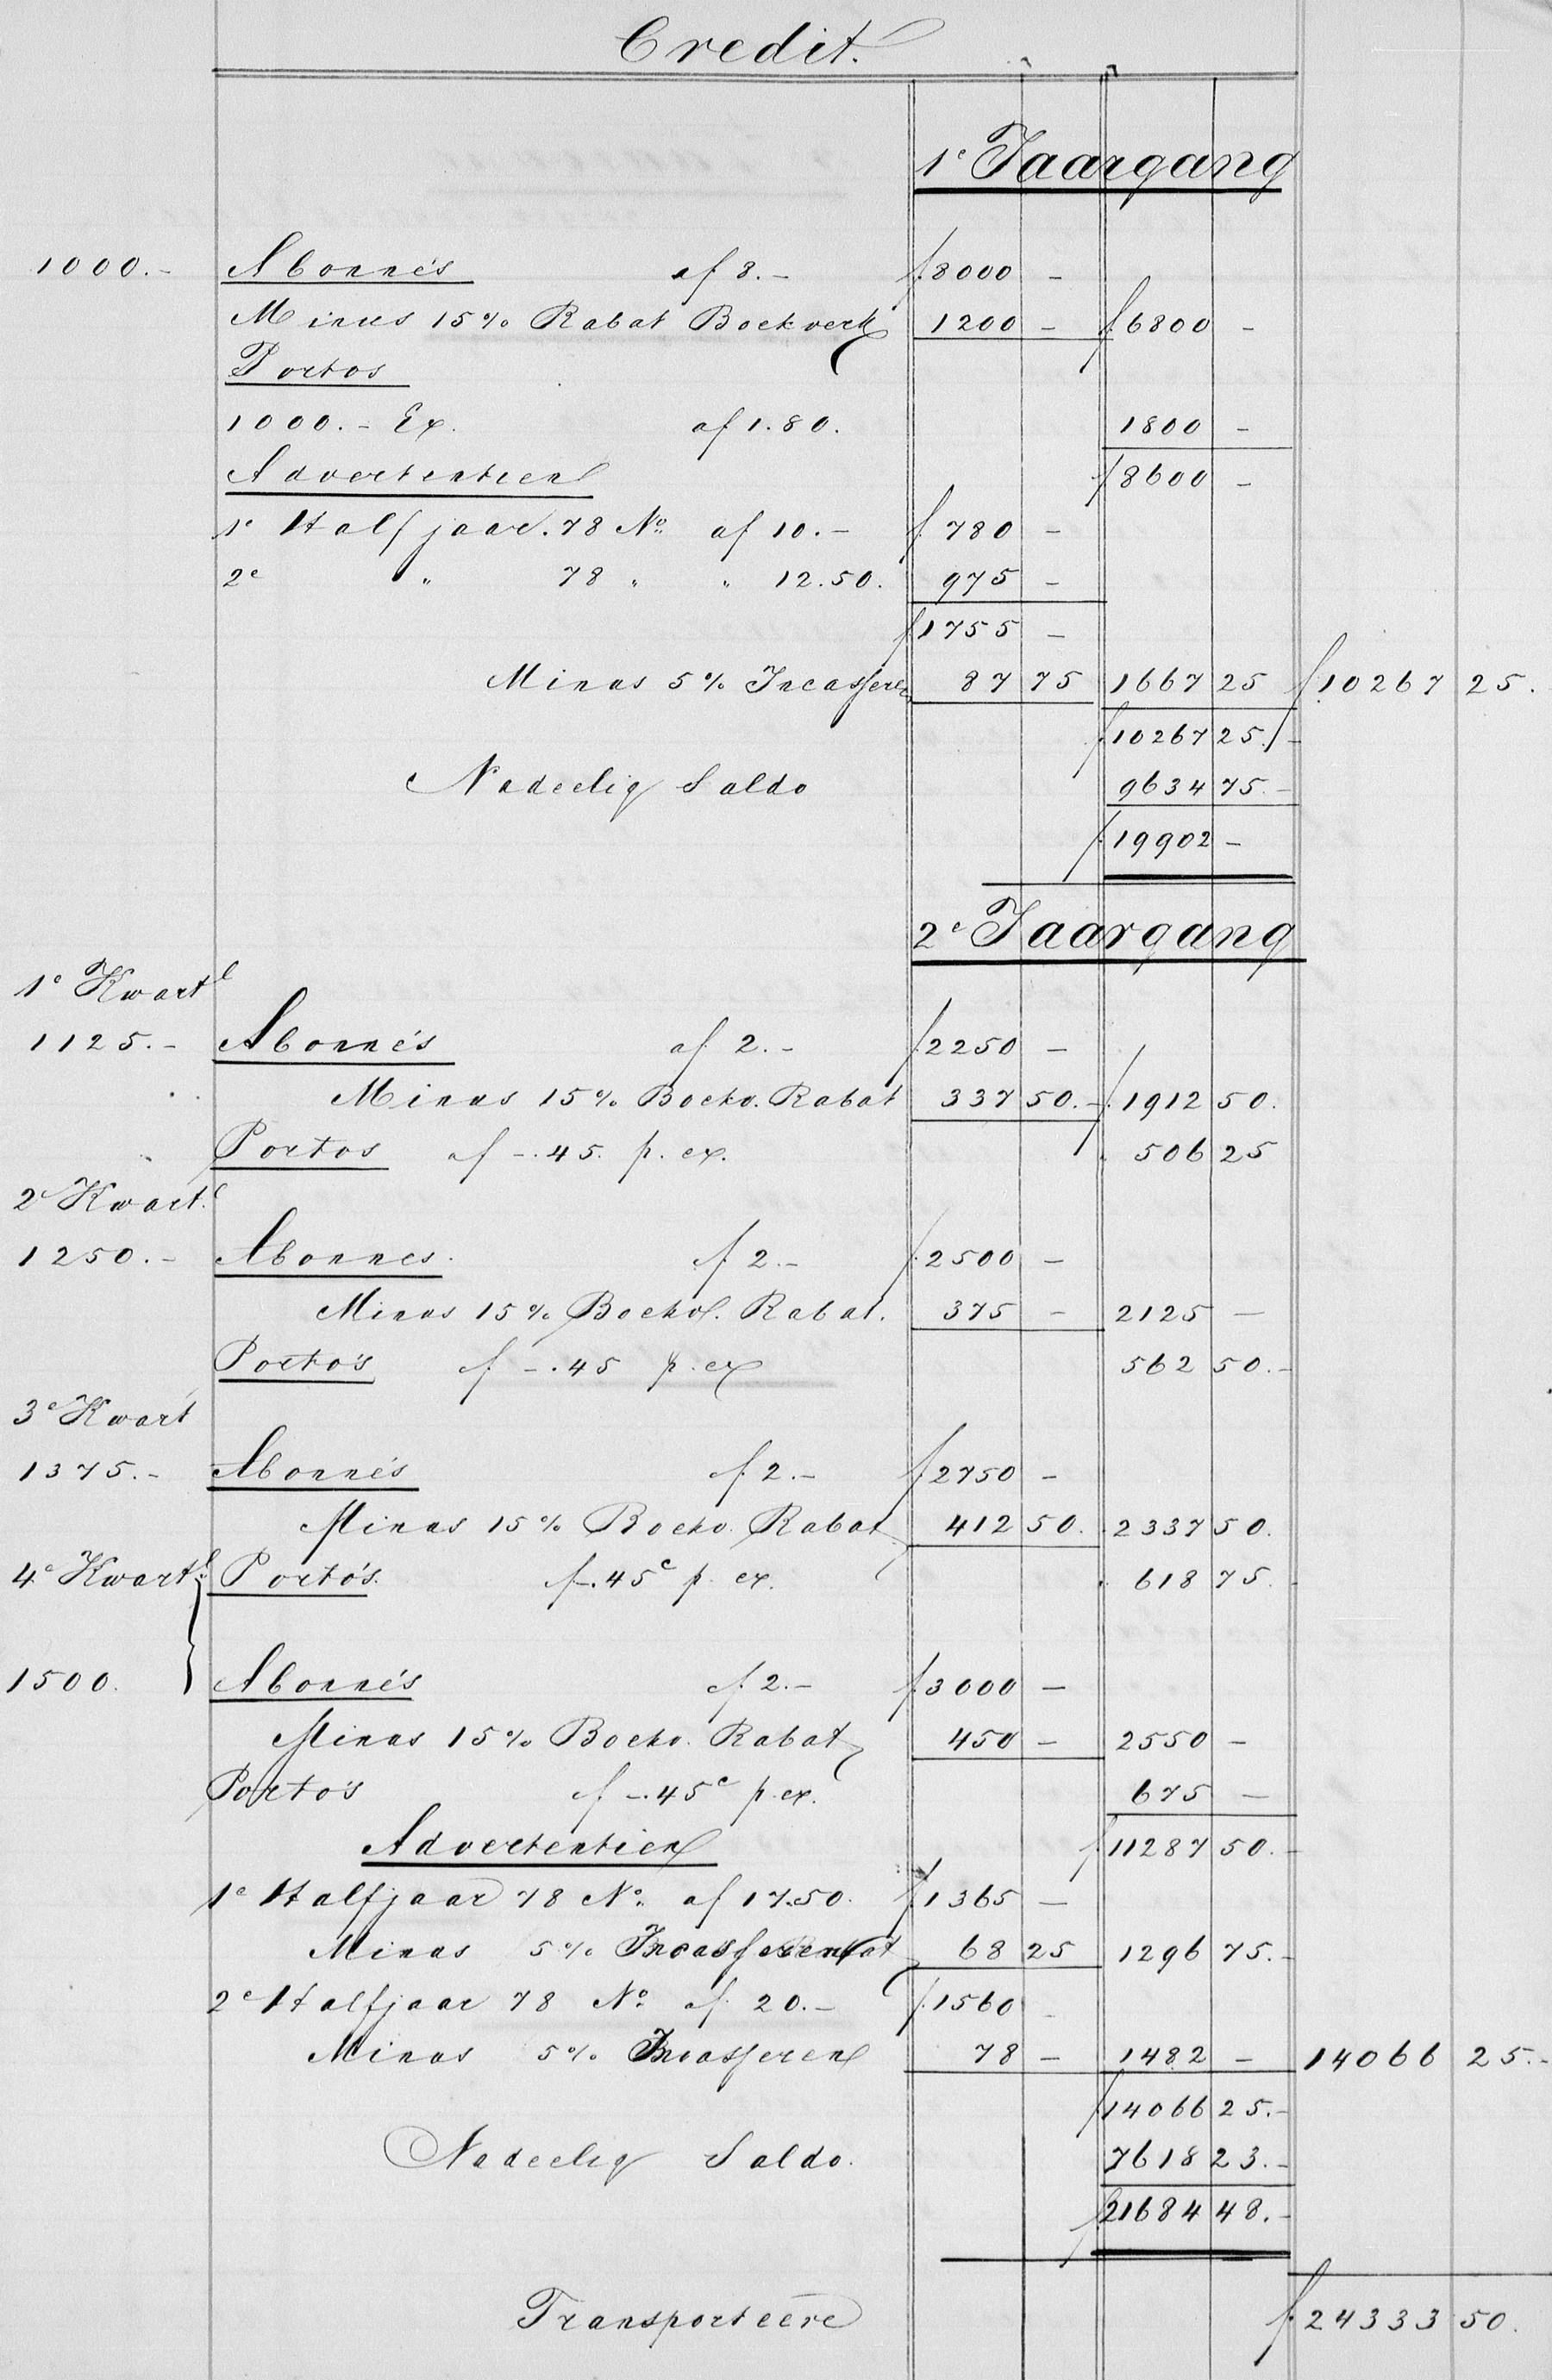 Credit.
1e Jaargang
1000.- Abonnés af 8.- f 8000 -
Minus 15% Rabat Boekverk 1200 - f 6800 -
Portos
1000.- Ex. af 1.80. 1800 -
Advertentien f 8600 -
1e Halfjaar. 78 No. af 10.- f 780 -
2e " 78 " " 12.50. 975 -
f 1755 -
Minus 5% Incasseren 87 75 1667 25 f 10267 25.
f 10267 25.-
Nadeelig Saldo 9634 75.-
f 19902 -
2e Jaargang
1e Kwartl
1125.- Abonnés af 2.- f 2250 -
Minus 15% Boekv. Rabat 337 50.- f 1912 50.
Portos af -.45. p. ex. 506 25
2e Kwart.l
1250.- Abonnes. af 2.- f 2500 -
Minus 15% Boekv. Rabat. 375 - 2125 -
Porto's af -.45 p. ex 562 50.-
3e Kwart
1375.- Abonnés f 2.- f 2750 -
Minus 15% Boekv. Rabat 412 50. 2337 50.
4e Kwart.l Porto's. f -.45c p. ex. 618 75.-
1500. Abonnés af 2.- f 3000 -
Minus 15% Boekv. Rabat 450 - 2550 -
Porto's af -.45c p. ex. 675 -
Advertentien f 11287 50.-
1e Halfjaar 78 No. af 17.50. f 1365 -
Minus 5% Incasseren 68 25 1296 75.-
2e Halfjaar 78 No. af 20.- f 1560 -
Minus 5% Incasseren 78 - 1482 - 14066 25.-
f 14066 25.-
Nadeelig Saldo. 7618 23.-
f 21684 48.-
Transporteere f 24333 50.